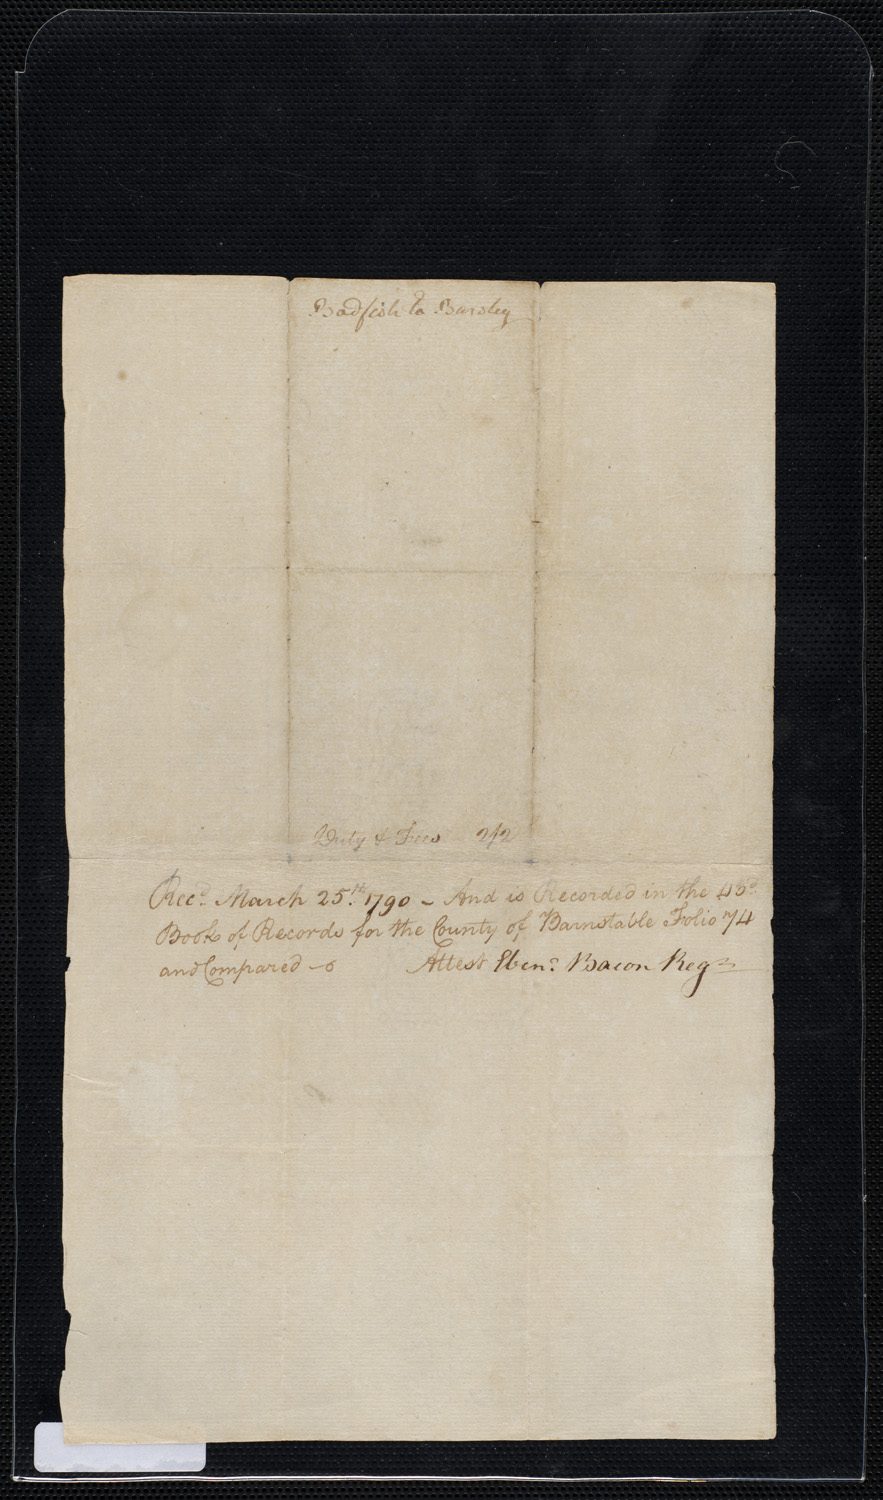 Badfish to Bursley
Duty & Fees 2/2
Recd. March 25.th 1790 ~ And is Recorded in the 43d.
Book of Records for the County of Barnstable Folio 74
and Compared
Attest Eben.r Bacon Regr